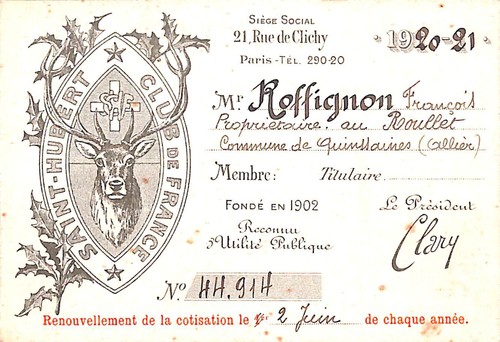 SIÈGE SOCIAL
21, Rue de Clichy
Paris - TÉL. 290-20
1920-21
SAINT-HUBERT CLUB DE FRANCE
Mr Roffignon François
Propriétaire au Roullet
Commune de Quinssaines (Allier)
Membre: Titulaire.
FONDÉ EN 1902
Reconnu
d'Utilité Publique
Le Président
Clary
No. 44.914
Renouvellement de la cotisation le 2 Juin de chaque année.